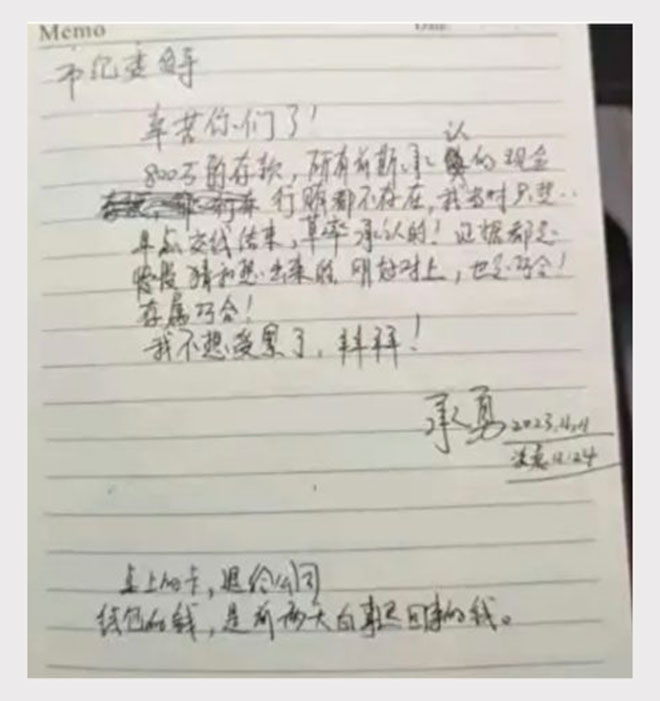 Memo
Date:
市纪委领导
辛苦你们了!
认
800万的存款,所有前期承的现金
行贿都不存在,我当时只想..
早点交代结束,草率承认的!证据都是
猜和想出来的,刚好对上,也是巧合!
存属巧合!
我不想受累了,拜拜!
承勇 2023.4.11
凌晨 4:24
桌上的卡,退给公司
钱包的钱,是前两天白事回来的钱。